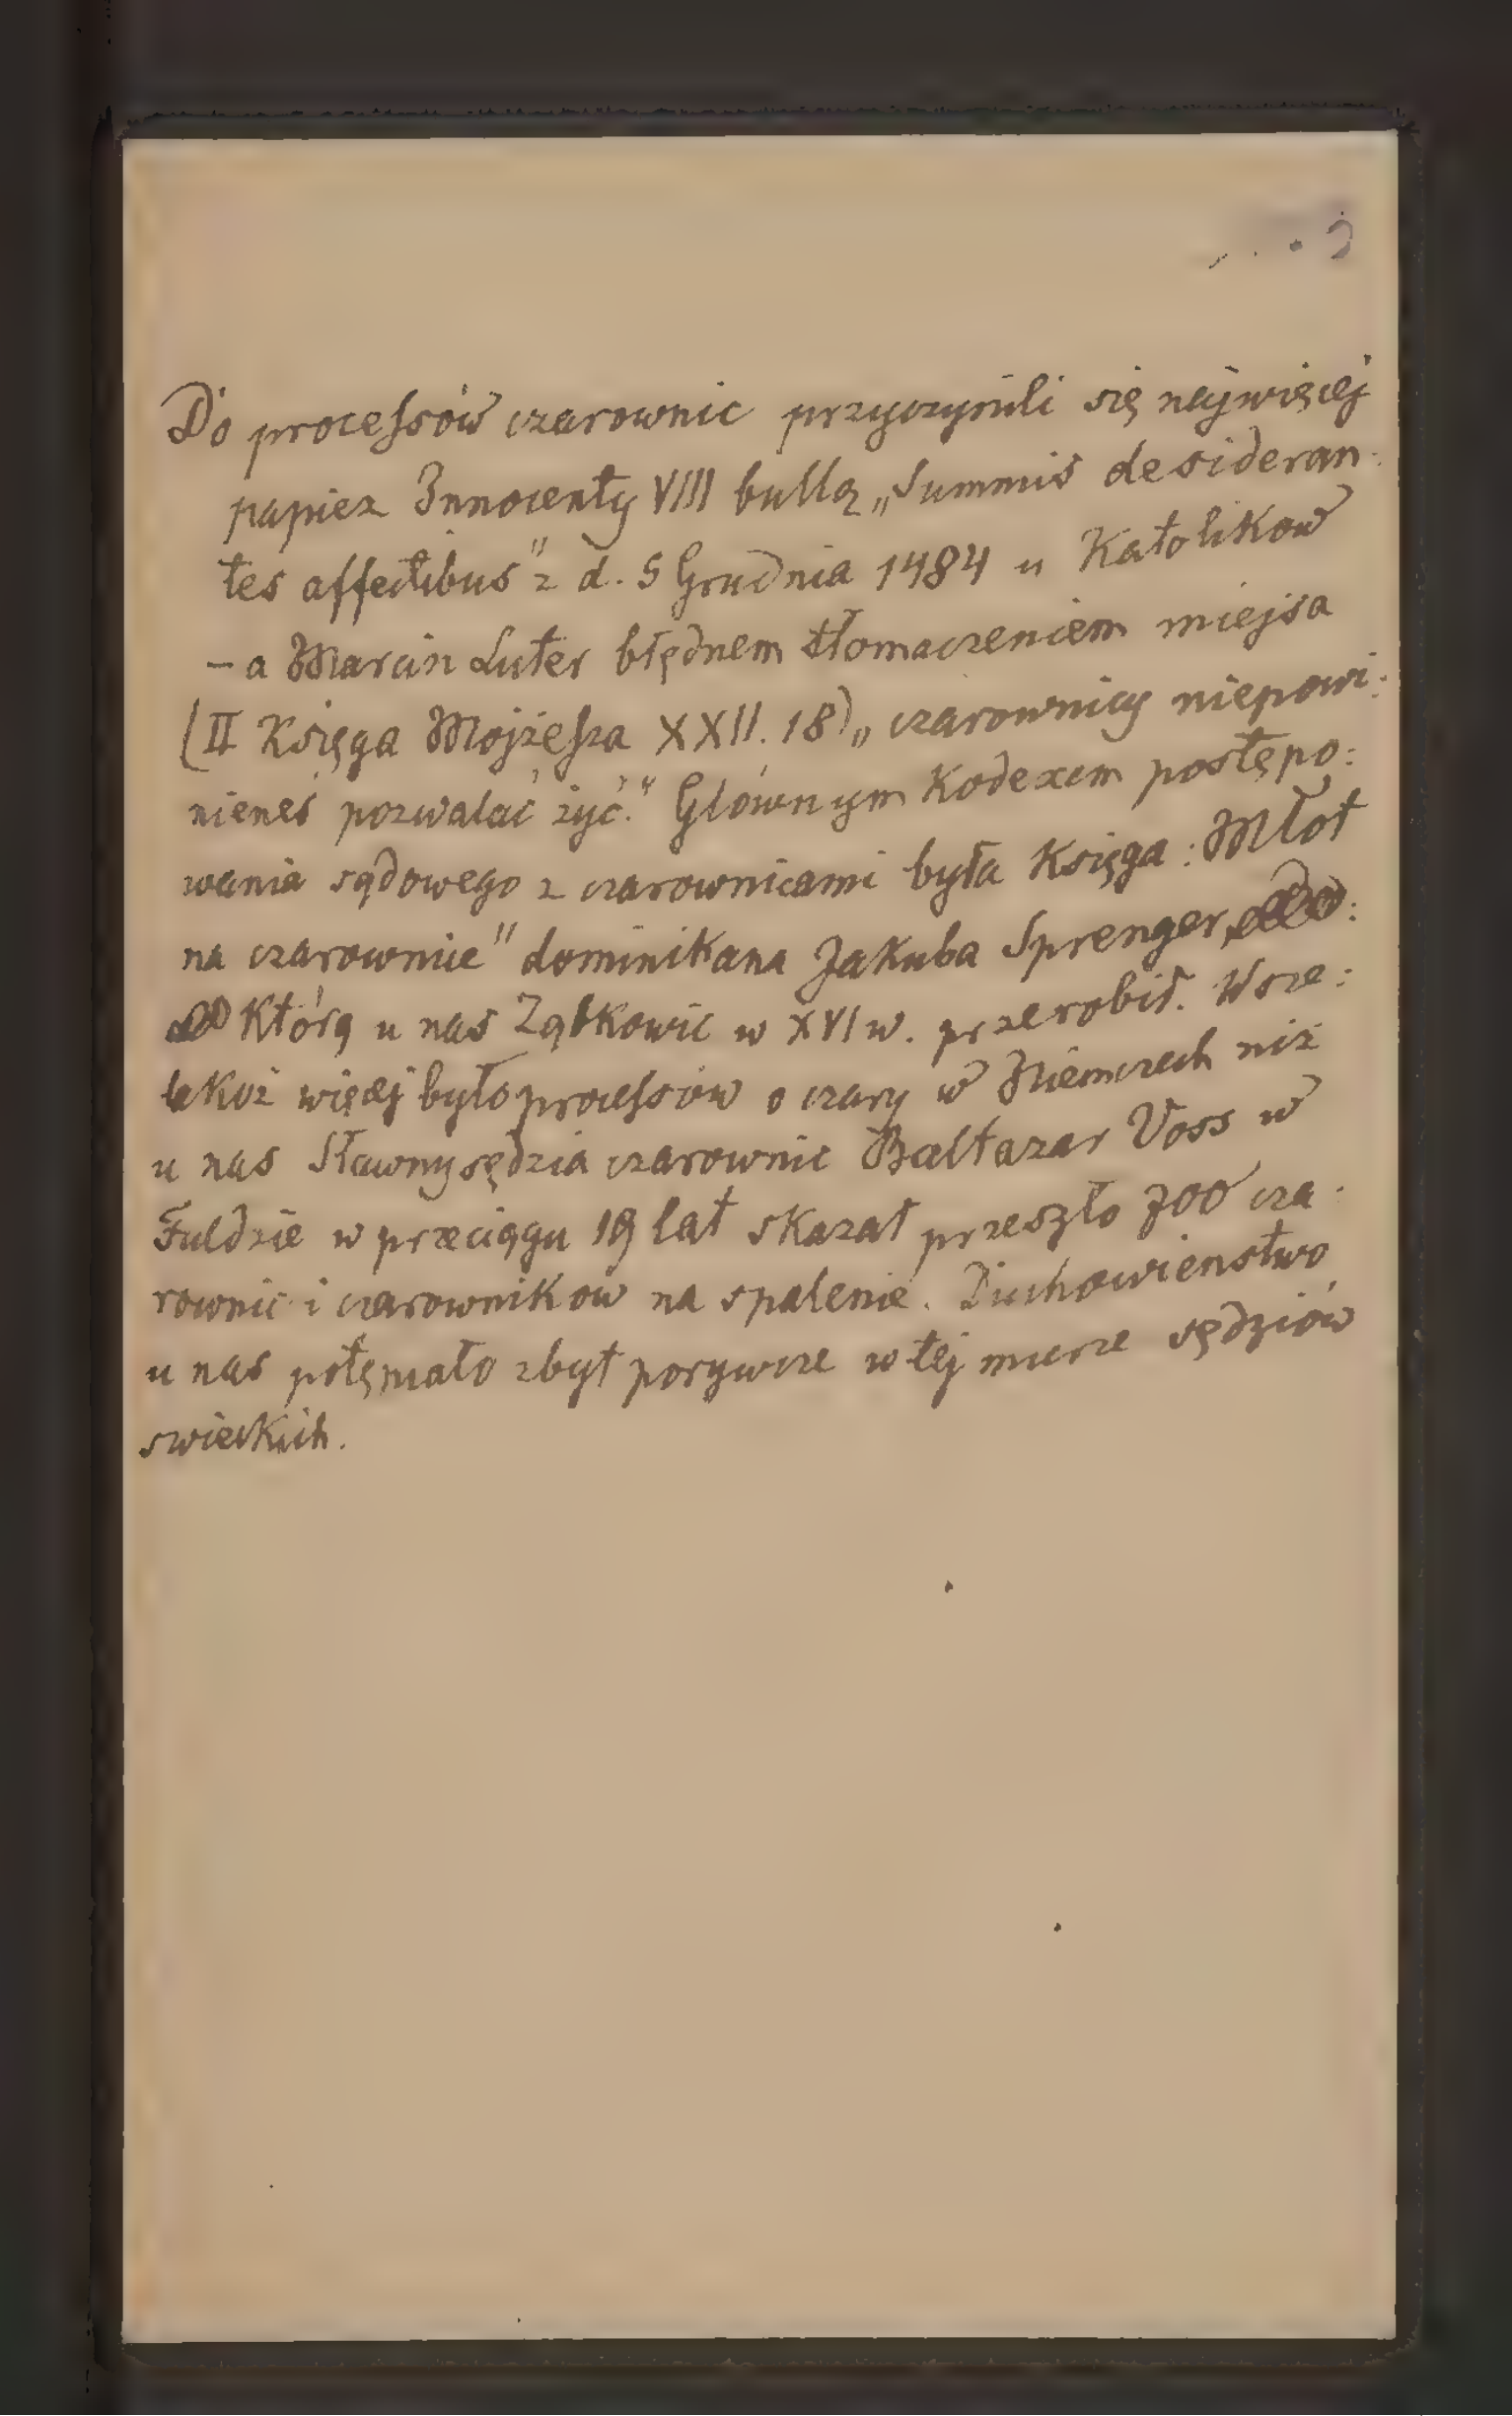 Do processów czarownic przyczynili się najwięcej
papież Innocenty VIII bullą „Summis desideran-
tes affectibus” z d. 5 Grudnia 1484 u Katolikow
– a Marcin Luter błędnem tłomaczeniem miejsca
(II Księga Mojżesza XXII. 18) „czarownicy niepowi:
nieneś pozwalać żyć.” Głównym Kodexem postępo:
wania sądowego z czarownicami była Księga: Młot
na czarownice” dominikana Jakuba Sprenger,
Którą u nas Ząbkowic w XVI w. przerobił. Wsze:
lakoż więcej było processów o czary w Niemczech niż
u nas Sławny sędzia czarownic Baltazar Voss w
Fuldzie w przeciągu 19 lat skazał przeszło 700 cza:
rownic i czarownikow na spalenie. Duchowienstwo
u nas potępiało zbyt porywcze w tej mierze sędziów
swieckich.